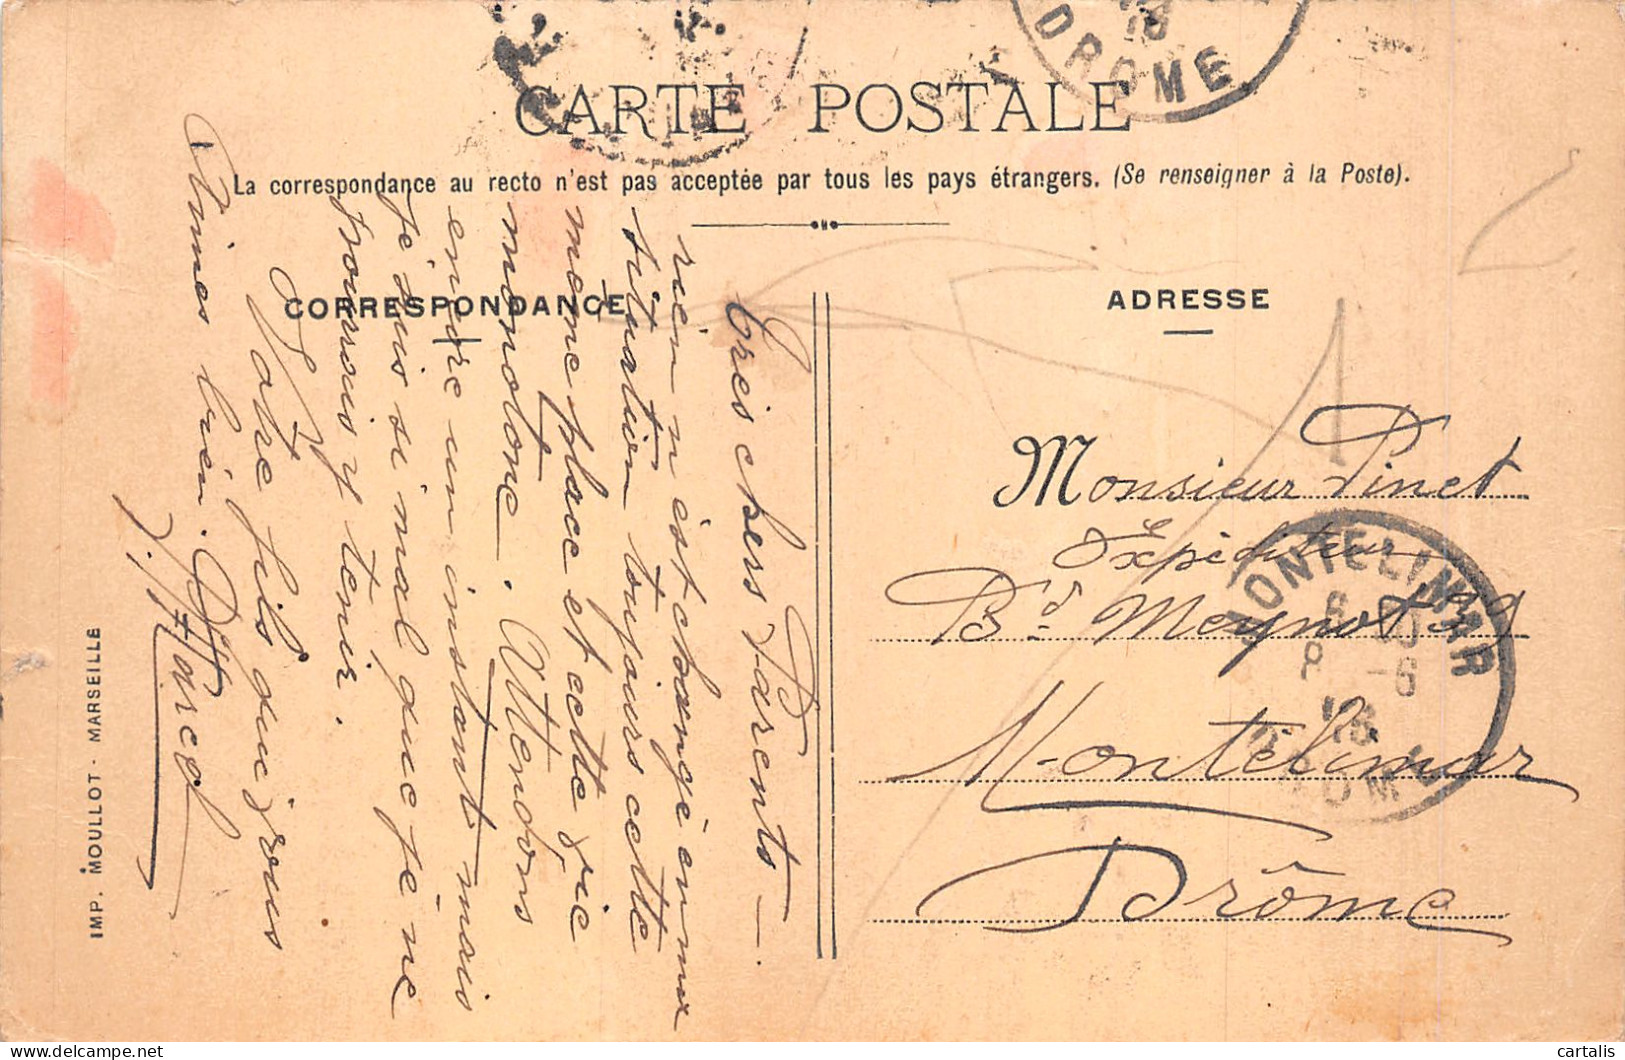 CARTE POSTALE
La correspondance au recto n'est pas acceptée par tous les pays étrangers. (Se renseigner à la Poste).
CORRESPONDANCE
ADRESSE
Très chers Parents —
rien n'est changé en ma
situation toujours cette
même place et cette vie
monotone. Attendons
encore un instant mais
je suis si mal que je ne
pourrais y tenir.
Votre fils qui vous
aimes bien.
Marcel
Monsieur Pinet
Expéditeur
Bd Meynot 39
Montélimar
Drôme
MONTELIMAR
DROME
DROME
18
IMP. MOULLOT - MARSEILLE
cartalis